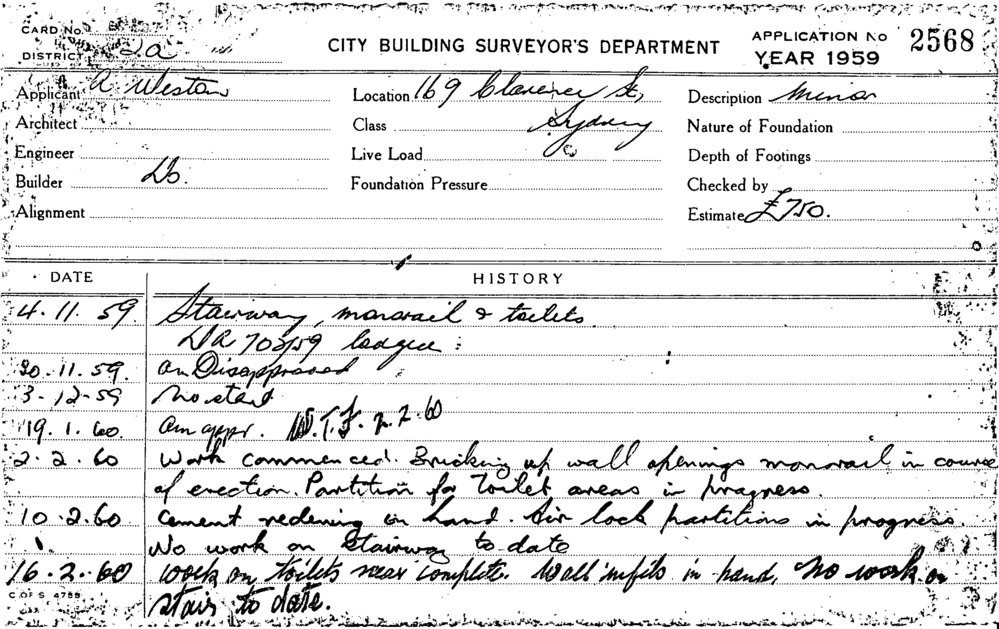 CARD No.
DISTRICT 2a
CITY BUILDING SURVEYOR'S DEPARTMENT
APPLICATION No 2568
YEAR 1959
Applicant A Weston
Location 169 Clarence St,
Description Minor
Architect
Class Sydney
Nature of Foundation
Engineer
Live Load
Depth of Footings
Builder Do.
Foundation Pressure
Checked by
Alignment
Estimate £750.
DATE HISTORY
4.11.59 Stairway, monorail & toilets
DA 702/59 lodged:
20.11.59. Disapproved
3-12-59 No start
19.1.60. am appr. W.T.F. 2.2.60
2.2.60 Work commenced. Bricking up wall openings monorail in course
of erection. Partition for Toilet areas in progress.
10.2.60 Cement rendering in hand. Air lock partitions in progress.
No work on Stairway to date
16.2.60 work on toilets near complete. Wall in hand, No work on
stair to date.
C OF S 4759